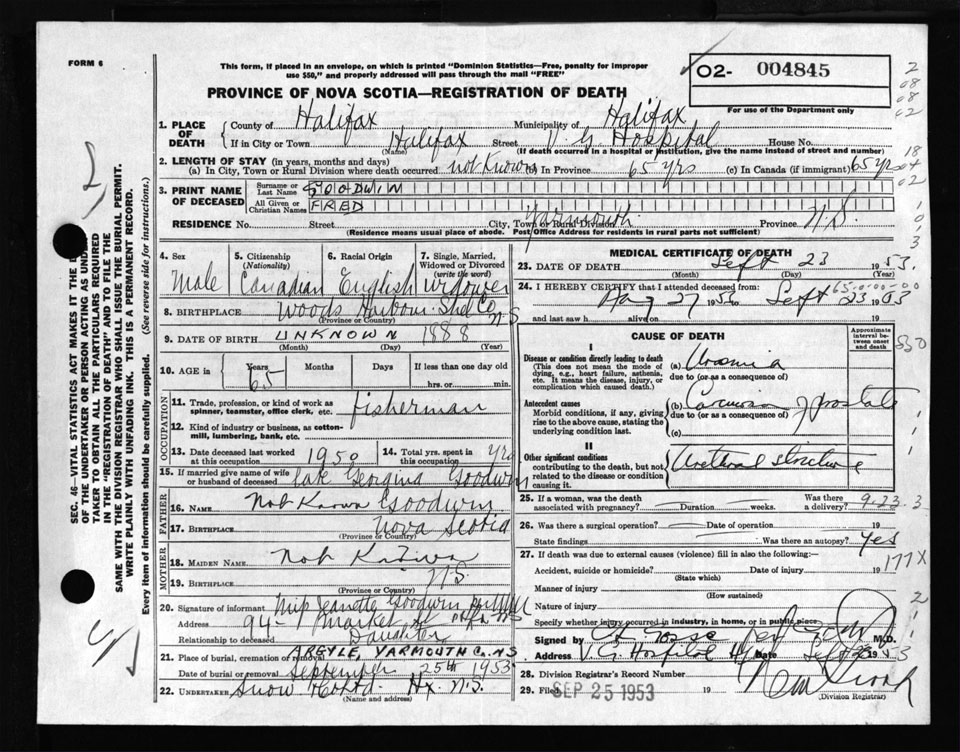 FORM 6
This form, if placed in an envelope, on which is printed "Dominion Statistics—Free, penalty for improper
use $50," and properly addressed will pass through the mail "FREE"
PROVINCE OF NOVA SCOTIA—REGISTRATION OF DEATH
02- 004845
For use of the Department only
SEC. 46—VITAL STATISTICS ACT MAKES IT THE
OF THE UNDERTAKER OR PERSON ACTING AS UNDER
TAKER TO OBTAIN ALL THE PARTICULARS REQUIRED
IN THE "REGISTRATION OF DEATH" AND TO FILE THE
SAME WITH THE DIVISION REGISTRAR WHO SHALL ISSUE THE BURIAL PERMIT.
WRITE PLAINLY WITH UNFADING INK. THIS IS A PERMANENT RECORD.
Every item of information should be carefully supplied. (See reverse side for instructions.)
1. PLACE OF DEATH County of Halifax Municipality of Halifax
If in City or Town Halifax Street V G Hospital House No.
(Name) (If death occurred in a hospital or institution, give the name instead of street and number)
2. LENGTH OF STAY (in years, months and days)
(a) In City, Town or Rural Division where death occurred not Known (b) In Province 65 yrs (c) In Canada (if immigrant) 65 yr
3. PRINT NAME OF DECEASED Surname or Last Name GOODWIN
All Given or Christian Names FRED
RESIDENCE No. Street City, Town or Rural Division Yarmouth Province N.S.
(Residence means usual place of abode. Post Office Address for residents in rural parts not sufficient)
4. Sex Male
5. Citizenship (Nationality) Canadian
6. Racial Origin English
7. Single, Married, Widowed or Divorced (write the word) widower
8. BIRTHPLACE Woods Harbour Shel Co N.S
(Province or Country)
9. DATE OF BIRTH UNKNOWN 1888
(Month) (Day) (Year)
10. AGE in Years 65 Months Days If less than one day old
hrs. or min.
OCCUPATION
11. Trade, profession, or kind of work as
spinner, teamster, office clerk, etc. fisherman
12. Kind of industry or business, as cotton-
mill, lumbering, bank, etc.
13. Date deceased last worked at this occupation 1950
14. Total yrs. spent in this occupation yrs
15. If married give name of wife
or husband of deceased late Georgina Goodwin
FATHER
16. NAME Not Known Goodwin
17. BIRTHPLACE Nova Scotia
(Province or Country)
MOTHER
18. MAIDEN NAME Not Known
19. BIRTHPLACE N.S.
(Province or Country)
20. Signature of informant Jeanette Goodwin
Address 94 Market St
Relationship to deceased Daughter
21. Place of burial, cremation or removal ARGYLE, YARMOUTH Co. NS
Date of burial or removal September 25th 1953
22. UNDERTAKER Snow Hx. N.S.
(Name and address)
MEDICAL CERTIFICATE OF DEATH
23. DATE OF DEATH Sept 23 1953
(Month) (Day) (Year)
24. I HEREBY CERTIFY that I attended deceased from:
Aug 27 1953 to Sept 23 1953
and last saw h alive on
65-0-00-00
CAUSE OF DEATH
Approximate interval between onset and death
I
Disease or condition directly leading to death
(This does not mean the mode of
dying, e.g., heart failure, asthenia,
etc. It means the disease, injury, or
complication which caused death.)
(a) Uraemia
due to (or as a consequence of)
Antecedent causes
Morbid conditions, if any, giving
rise to the above cause, stating the
underlying condition last.
(b) Carcinoma of prostate
due to (or as a consequence of)
(c)
II
Other significant conditions
contributing to the death, but not
related to the disease or condition
causing it.
Urethral stricture
25. If a woman, was the death
associated with pregnancy? Duration weeks. Was there a delivery?
9-23-3
26. Was there a surgical operation? Date of operation 19
State findings Was there an autopsy? Yes
27. If death was due to external causes (violence) fill in also the following:—
177X
Accident, suicide or homicide? Date of injury 19
(State which)
Manner of injury
(How sustained)
Nature of injury
Specify whether injury occurred in industry, in home, or in public place
Signed by M.D.
Address V.G. Hospital Date Sept 23 1953
28. Division Registrar's Record Number
29. Filed SEP 25 1953 19
(Division Registrar)